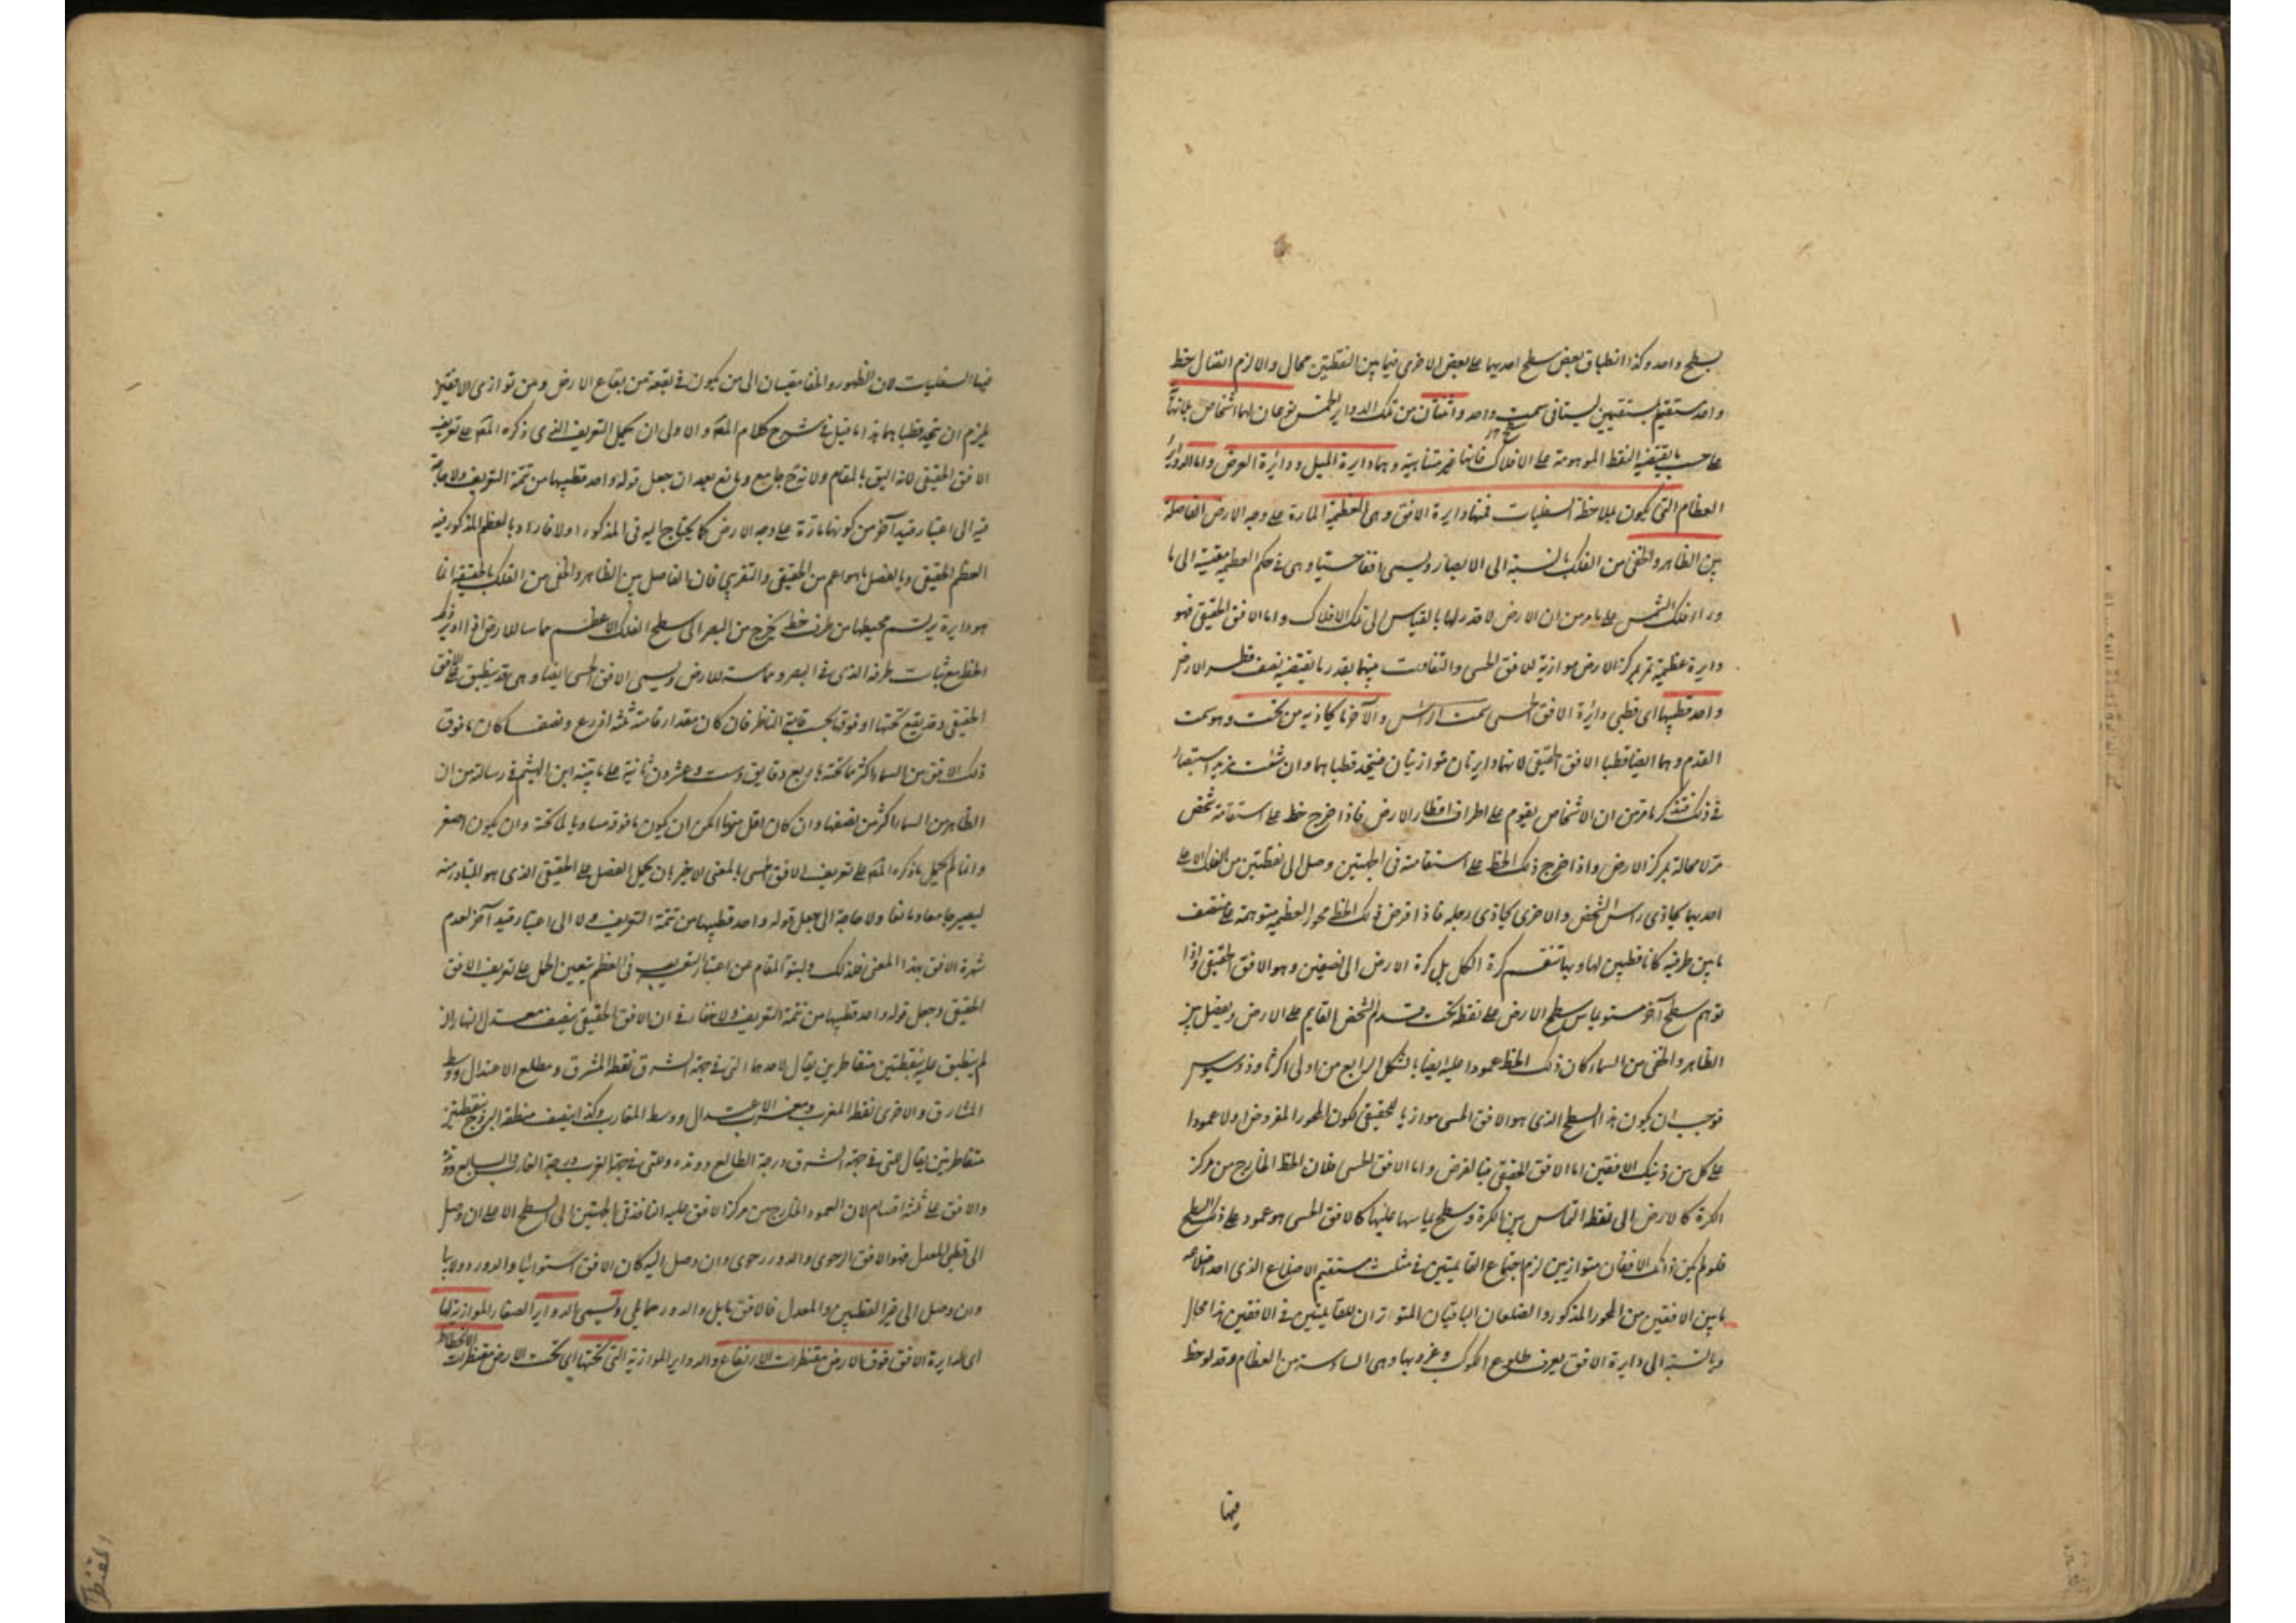 بسطح واحد وكذا انطباق بعض سطح احديهما على بعض الاخرى فيما بين النقطتين محال والا لزم اتصال خط
واحد مستقيم بمستقيمين ليسا في سمت واحد واثنتان من تلك الدواير الخمس نوعان لهما اشخاص بلا نهاية
على حسب ما يقتضيه النقط الموهومة على سطح الافلاك فانها غير متناهية وهما دايرة الميل ودائرة العرض واما الدواير
العظام التي يكون بملاحظة السفليات فمنها دايرة الافق وهى العظيمة المارة على وجه الارض الفاصلة
بين الظاهر والخفى من الفلك بالنسبة الى الابصار ويسمى افقا حسيا وهى في حكم العظيمة مقيسة الى ما
وراء فلك الشمس على ما مر من ان الارض لا قدر لها بالقياس الى تلك الافلاك واما الافق الحقيقى فهو
دايرة عظيمة تمر بمركز الارض موازية للافق الحسى والتفاوت بينهما بقدر ما يقتضيه نصف قطر الارض
واحد قطبيها اى قطبى دائرة الافق الحسى سمت الراس والآخر ما يحاذيه من تحت وهو سمت
القدم وهما ايضا قطبا الافق الحقيقى لانهما دايرتان متوازيتان فيتحد قطباهما وان شئت مزيد استبصار
في ذلك فتذكر ما مر من ان الاشخاص يقوم على اطراف اقطار الارض فاذا خرج خط على استقامة شخص
مر لا محالة بمركز الارض واذا اخرج ذلك الخط على استقامته في الجهتين وصل الى نقطتين من الفلك الاعلى
احديهما يحاذى راس الشخص والاخرى يحاذى رجله فاذا فرض ذلك الخط محورا لعظيمة متوهمة على منتصف
ما بين طرفيه كانا قطبين لها وبها تنقسم كرة الكل بل كرة الارض الى نصفين وهو الافق الحقيقى واذا
توهم سطح آخر مستو يماس سطح الارض على نقطة تحت قدم الشخص القايم على الارض ويفصل بين
الظاهر والخفى من السماء كان ذلك الخط عمودا عليه ايضا بالشكل الرابع من اولى اكر ثاوذوسيوس
فوجب ان يكون هذا السطح الذى هو الافق الحسى موازيا للحقيقى لكون المحور المفروض اولا عمودا
على كل من ذينك الافقين اما الافق الحقيقى فبالفرض واما الافق الحسى فلان الخط الخارج من مركز
الكرة كالارض الى نقطة التماس بين الكرة وسطح يماسها عليها كالافق الحسى هو عمود على ذلك السطح
فلو لم يكن ذانك الافقان متوازيين لزم اجتماع القائمتين في مثلث مستقيم الاضلاع الذى احد اضلاعه
ما بين الافقين من المحور المذكور والضلعان الباقيان المتوازيان للقائمتين في الافقين هذا محال
وبالنسبة الى دايرة الافق يعرف طلوع الكوكب وغروبها وهى السادسة من العظام وقد لوحظ
فيها
فيها السفليات لان الظهور والخفا مقيسان الى من يكون في بقعة من بقاع الارض ومن توازى الافقين
يلزم ان يتحد قطباهما هذا ما قيل في شرح كلام المص والاولى ان يحمل التعريف الذى ذكره المص على تعريف
الافق الحقيقى لانه اليق بالمقام ولانه جامع ومانع بعد ان جعل قوله واحد قطبيها من تتمة التعريف ولا حاجة
فيه الى اعتبار قيد آخر من كونها مارة على وجه الارض كما يحتاج اليه في المذكور اولا فاراد بالعظم المذكور فيه
العظم الحقيقى وبالفصل ما هو اعم من الحقيقى والتقريبى فان الفاصل بين الظاهر والخفى من الفلك بالحقيقة انما
هو دايرة يرتسم محيطها من طرف خط يخرج من البصر الى سطح الفلك الاعظم مماسا للارض اذا ادير ذلك
الخط مع ثبات طرفه الذى في البصر ومماسته للارض ويسمى الافق الحسى ايضا وهى قد ينطبق على الافق
الحقيقى وقد يقع تحتها او فوقها بحسب قامة الناظر فان كان مقدار قامته ثلثة اذرع ونصف كان ما فوق
ذلك الافق من السماء اكثر مما تحته باربع دقايق وست وعشرون ثانية على ما بينه ابن الهيثم في رسالة من ان
الظاهر من السماء اكثر من نصفها وان كان اقل منها امكن ان يكون ما فوقه مساويا لما تحته وان يكون اصغر
وانما لم يحمل ما ذكره المص على تعريف الافق الحسى بالمعنى الاخير بان يحمل الفصل على الحقيقى الذى هو المتبادر منه
ليصير جامعا ومانعا ولا حاجة الى جعل قوله واحد قطبيها من تتمة التعريف ولا الى اعتبار قيد آخر لعدم
شهرة الافق بهذا المعنى فلذلك ولنبو المقام عن اعتبار التقريب في العظم يتعين الحمل على تعريف الافق
الحقيقى وجعل قوله واحد قطبيها من تتمة التعريف ولا خفاء في ان الافق الحقيقى ينصف معدل النهار ان
لم ينطبق عليه بنقطتين متقاطرتين يقال لاحدهما التى في جهة الشرق نقطة المشرق ومطلع الاعتدال ووسط
المشارق والاخرى نقطة المغرب ومغرب الاعتدال ووسط المغارب وكذا ينصف منطقة البروج بنقطتين
متقاطرتين يقال للتى في جهة الشرق درجة الطالع ووتده وللتى في جهة الغرب درجة الغارب والسابع ووتده
والافق على ثلثة اقسام لان العمود الخارج من مركز الافق عليه النافذ في الجهتين الى السطح الاعلى ان وصل
الى قطبى المعدل فهو الافق الرحوى والدور رحوى وان وصل اليه كان الافق استوائيا والدور دولابيا
وان وصل الى غير القطبين والمعدل فالافق مايل والدور حمايلى ويسمى الدواير الصغار الموازية لها
اى لدايرة الافق فوق الارض مقنطرات الارتفاع والدواير الموازية التى تحتها اى تحت الارض مقنطرات الانحطاط
المقنطرات